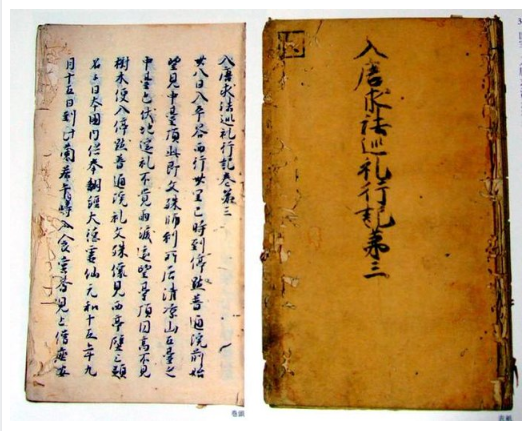 入唐求法巡礼行記第三
入唐求法巡礼行記卷第三
廿八日入平谷西行卅里巳時到停點普通院前始
望見中臺頂此即文殊師利所居清凉山五臺之
中臺也伏地遥礼不覺雨淚遥望臺頂圓高不見
樹木便入停點普通院礼文殊像見西亭壁上題
名云日本國内供奉翻經大德靈仙元和十五年九
月十五日到此蘭若齋時入食堂見上僧座安
卷頭
表紙